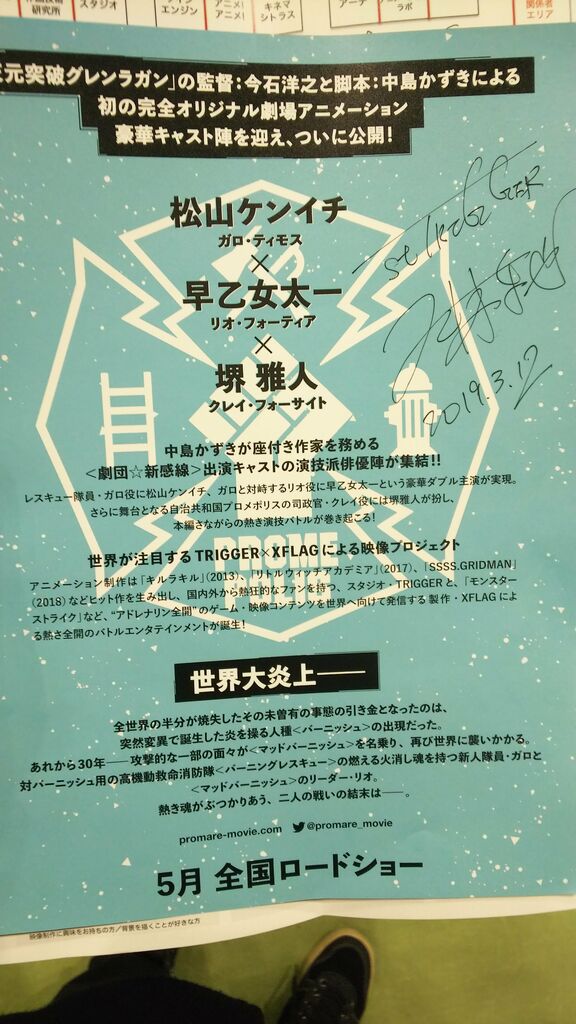 研究所
スタジオ
エンジン
アニメ!
アニメ!
キネマ
シトラス
アーチ
ラボ
関係者
エリア
元突破グレンラガン」の監督:今石洋之と脚本:中島かずきによる
初の完全オリジナル劇場アニメーション
豪華キャスト陣を迎え、ついに公開!
松山ケンイチ
ガロ・ティモス
×
早乙女太一
リオ・フォーティア
×
堺 雅人
クレイ・フォーサイト
TRIGGER
2019.3.12
中島かずきが座付き作家を務める
<劇団☆新感線>出演キャストの演技派俳優陣が集結!!
レスキュー隊員・ガロ役に松山ケンイチ、ガロと対峙するリオ役に早乙女太一という豪華ダブル主演が実現。
さらに舞台となる自治共和国プロメポリスの司政官・クレイ役には堺雅人が扮し、
本編さながらの熱き演技バトルが巻き起こる!
PROME
世界が注目するTRIGGER×XFLAGによる映像プロジェクト
アニメーション制作は「キルラキル」(2013)、「リトルウィッチアカデミア」(2017)、「SSSS.GRIDMAN」
(2018)などヒット作を生み出し、国内外から熱狂的なファンを持つ、スタジオ・TRIGGERと、「モンスター
ストライク」など、“アドレナリン全開”のゲーム・映像コンテンツを世界へ向けて発信する 製作・XFLAGによ
る熱さ全開のバトルエンタテインメントが誕生!
世界大炎上――
全世界の半分が焼失したその未曽有の事態の引き金となったのは、
突然変異で誕生した炎を操る人種<バーニッシュ>の出現だった。
あれから30年――攻撃的な一部の面々が<マッドバーニッシュ>を名乗り、再び世界に襲いかかる。
対バーニッシュ用の高機動救命消防隊<バーニングレスキュー>の燃える火消し魂を持つ新人隊員・ガロと
<マッドバーニッシュ>のリーダー・リオ。
熱き魂がぶつかりあう、二人の戦いの結末は――。
promare-movie.com @promare_movie
5月 全国ロードショー
映像制作に興味をお持ちの方/背景を描くことが好きな方